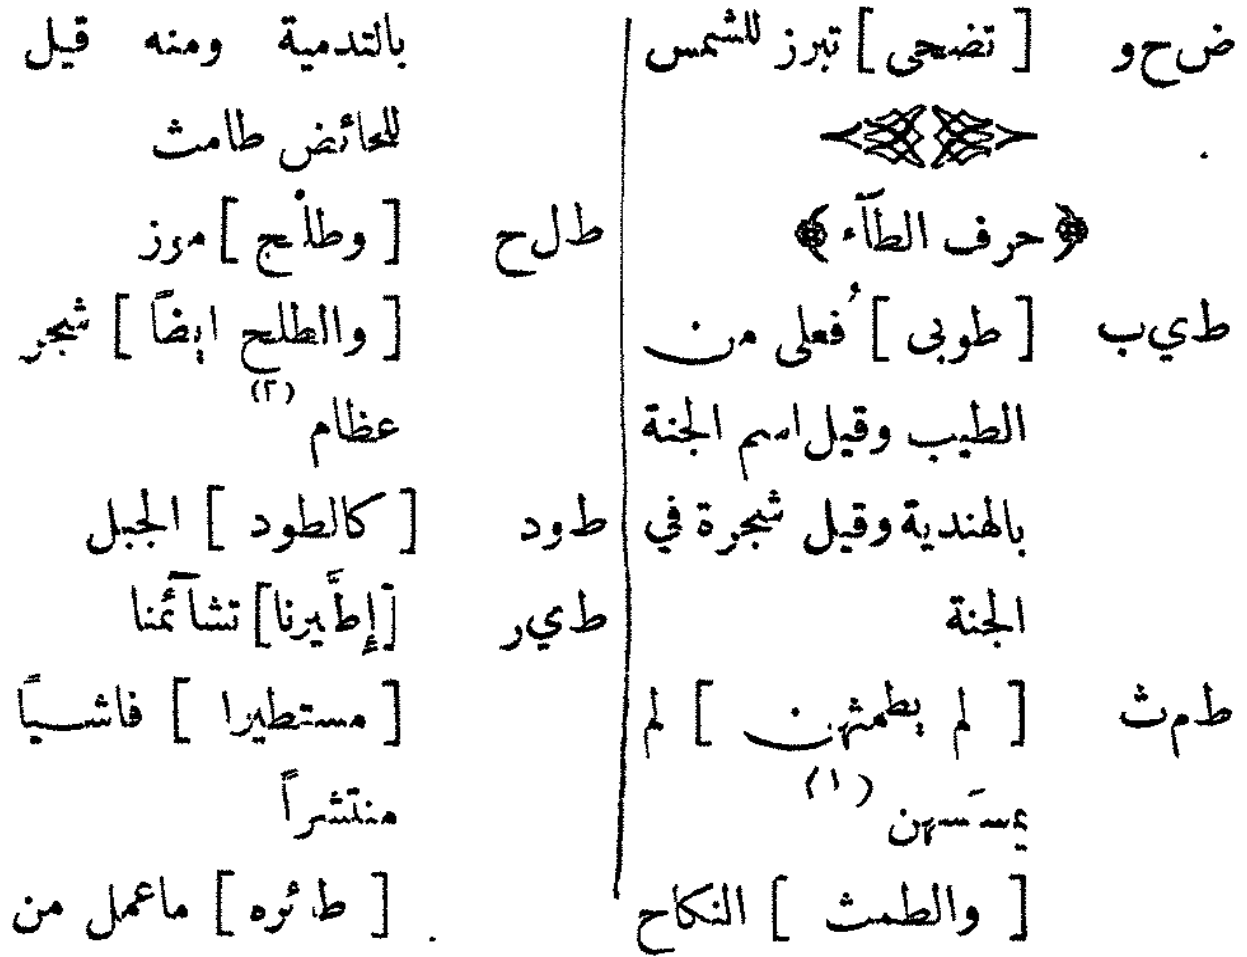 ض ح و [ تضحى ] تبرز للشمس
﴿ حرف الطآء ﴾
ط ي ب [ طوبى ] فُعلى من
الطيب وقيل اسم الجنة
بالهندية وقيل شجرة في
الجنة
ط م ث [ لم يطمثهن ] لم
يمسَسهن (١)
[ والطمث ] النكاح
بالتدمية ومنه قيل
للحائض طامث
ط ل ح [ وطلْح ] موز
[ والطلح ايضاً ] شجر
عظام (٢)
ط و د [ كالطود ] الجبل
ط ي ر [إطَّيرنا] تشآئمنا
[ مستطيرا ] فاشياً
منتشراً
[ طائره ] ماعمل من